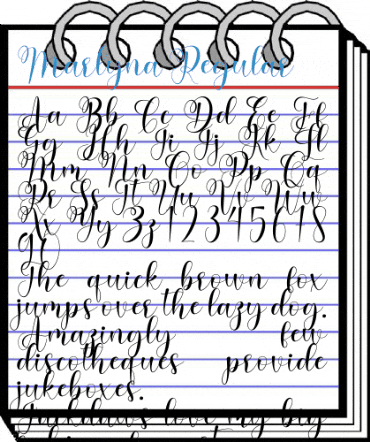 Marlyna Regular
Aa Bb Cc Dd Ee Ff
Gg Hh Ii Jj Kk Ll
Mm Nn Oo Pp Qq
Rr Ss Tt Uu Vv Ww
Xx Yy Zz 1 2 3 4 5 6 7 8
9 0
The quick brown fox
jumps over the lazy dog.
Amazingly few
discotheques provide
jukeboxes.
Jackdaws love my big